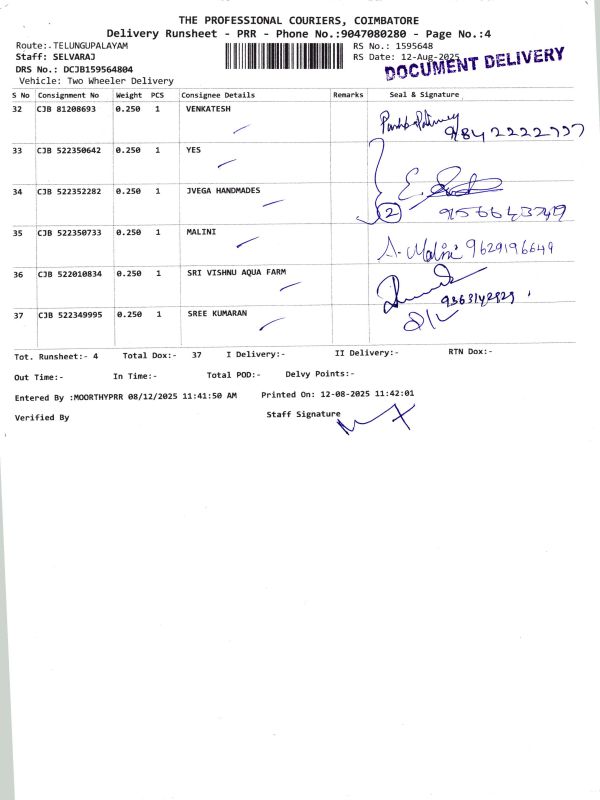 THE PROFESSIONAL COURIERS, COIMBATORE
Delivery Runsheet - PRR - Phone No.:9047080280 - Page No.:4
Route:- TELUNGUPALAYAM RS No.: 1595648
Staff: SELVARAJ RS Date: 12-Aug-2025
DRS No.: DCJB159564804 DOCUMENT DELIVERY
Vehicle: Two Wheeler Delivery
S No Consignment No Weight PCS Consignee Details Remarks Seal & Signature
32 CJB 81208693 0.250 1 VENKATESH
33 CJB 522350642 0.250 1 YES
34 CJB 522352282 0.250 1 JVEGA HANDMADES
2
35 CJB 522350733 0.250 1 MALINI A. Malini 9629196649
36 CJB 522010834 0.250 1 SRI VISHNU AQUA FARM
37 CJB 522349995 0.250 1 SREE KUMARAN
Tot. Runsheet:- 4 Total Dox:- 37 I Delivery:- II Delivery:- RTN Dox:-
Out Time:- In Time:- Total POD:- Delvy Points:-
Entered By :MOORTHYPRR 08/12/2025 11:41:50 AM Printed On: 12-08-2025 11:42:01
Verified By Staff Signature